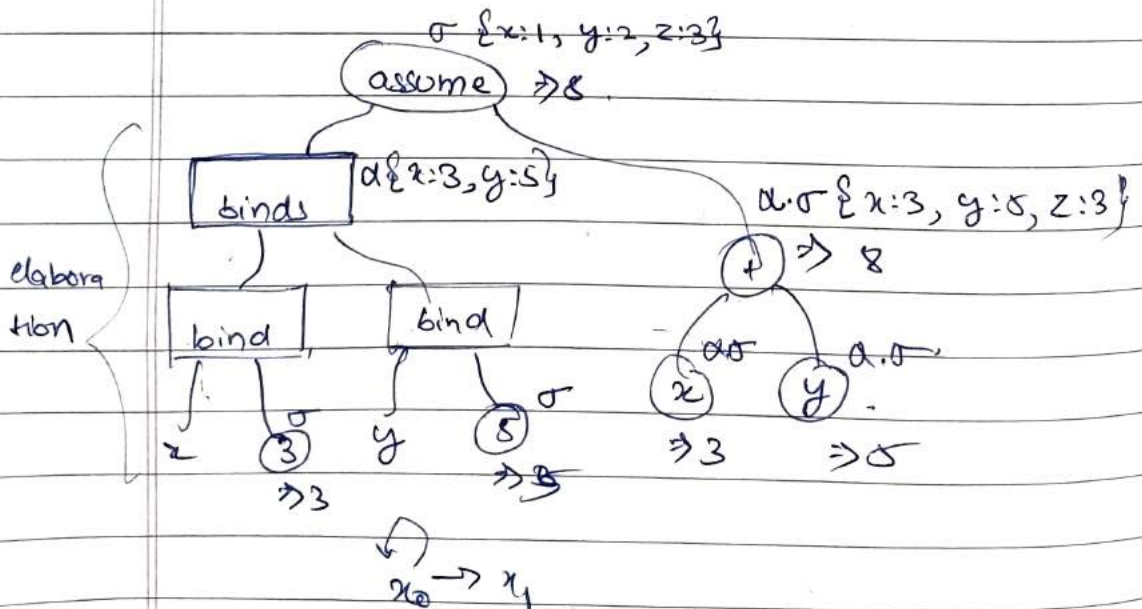 σ {x:1, y:2, z:3}
assume ⇒ 8
binds α{x:3, y:5}
α.σ {x:3, y:5, z:3}
+ ⇒ 8
elabora
tion
bind bind
x α.σ y α.σ
x 3 σ y 5 σ
⇒3 ⇒5 ⇒3 ⇒5
x₀ → x₁